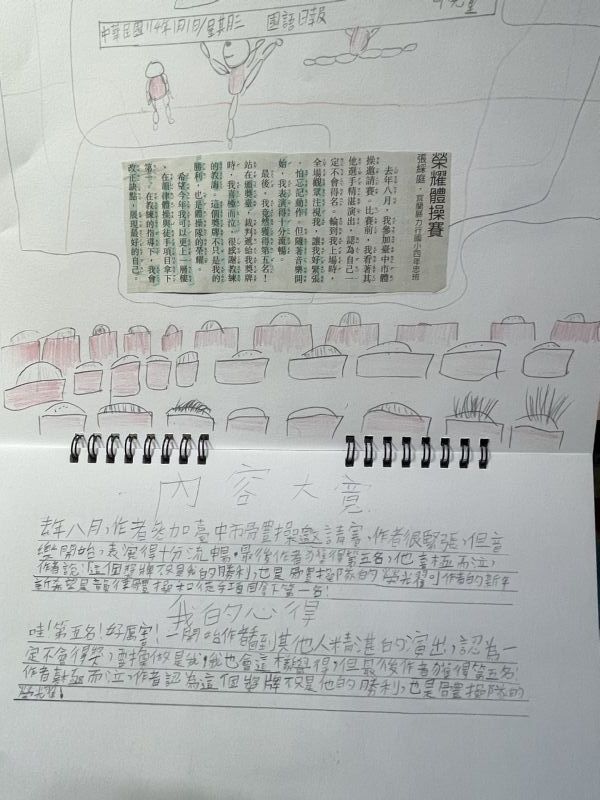 中華民國114年1月1日/星期三 國語日報
榮耀體操賽
張綵庭．宜蘭縣力行國小四年忠班
去年八月，我參加臺中市體
操邀請賽。比賽前，我看著其
他選手精湛演出，認為自己一
定不會得名。輪到我上場時，
全場觀眾注視我，讓我好緊張
，怕忘記動作。但隨著音樂開
始，我表演得十分流暢。
最後，我竟然獲得第五名！
站在頒獎臺，裁判遞給我獎牌
時，我喜極而泣。很感謝教練
的教導。這個獎牌不只是我的
勝利，也是體操隊的榮耀。
希望今年我可以更上一層樓
，在韻律體操與徒手項目拿下
第一。在教練的指導下，我會
改正缺點，展現最好的自己。
內容大意
去年八月，作者參加臺中市體操邀請賽，作者很緊張，但音
樂開始，表演得十分流暢。最後作者獲得第五名，他喜極而泣，
作者說：這個獎牌不只是我的勝利，也是體操隊的榮耀。作者的新年
新希望是韻律體操和徒手項目拿下第一名！
我的心得
哇！第五名！好厲害！一開始作者看到其他人精湛的演出，認為一
定不會得獎，要換做是我，我也會這樣覺得，但最後作者獲得第五名！
作者喜極而泣，作者認為這個獎牌不只是他的勝利，也是體操隊的
榮耀！